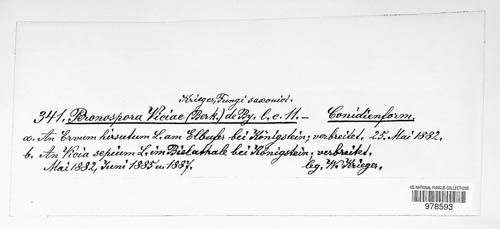 Krieger, Fungi saxonici.
341. Peronospora Viciae (Berk.) de By. l. c. 11. — Conidienform.
a. An Ervum hirsutum L. am Elbufer bei Königstein; verbreitet. 25. Mai 1882.
b. An Vicia sepium L. im Bielathale bei Königstein; verbreitet.
Mai 1882, Juni 1885 u. 1887. leg. W. Krieger.
US NATIONAL FUNGUS COLLECTIONS
978593